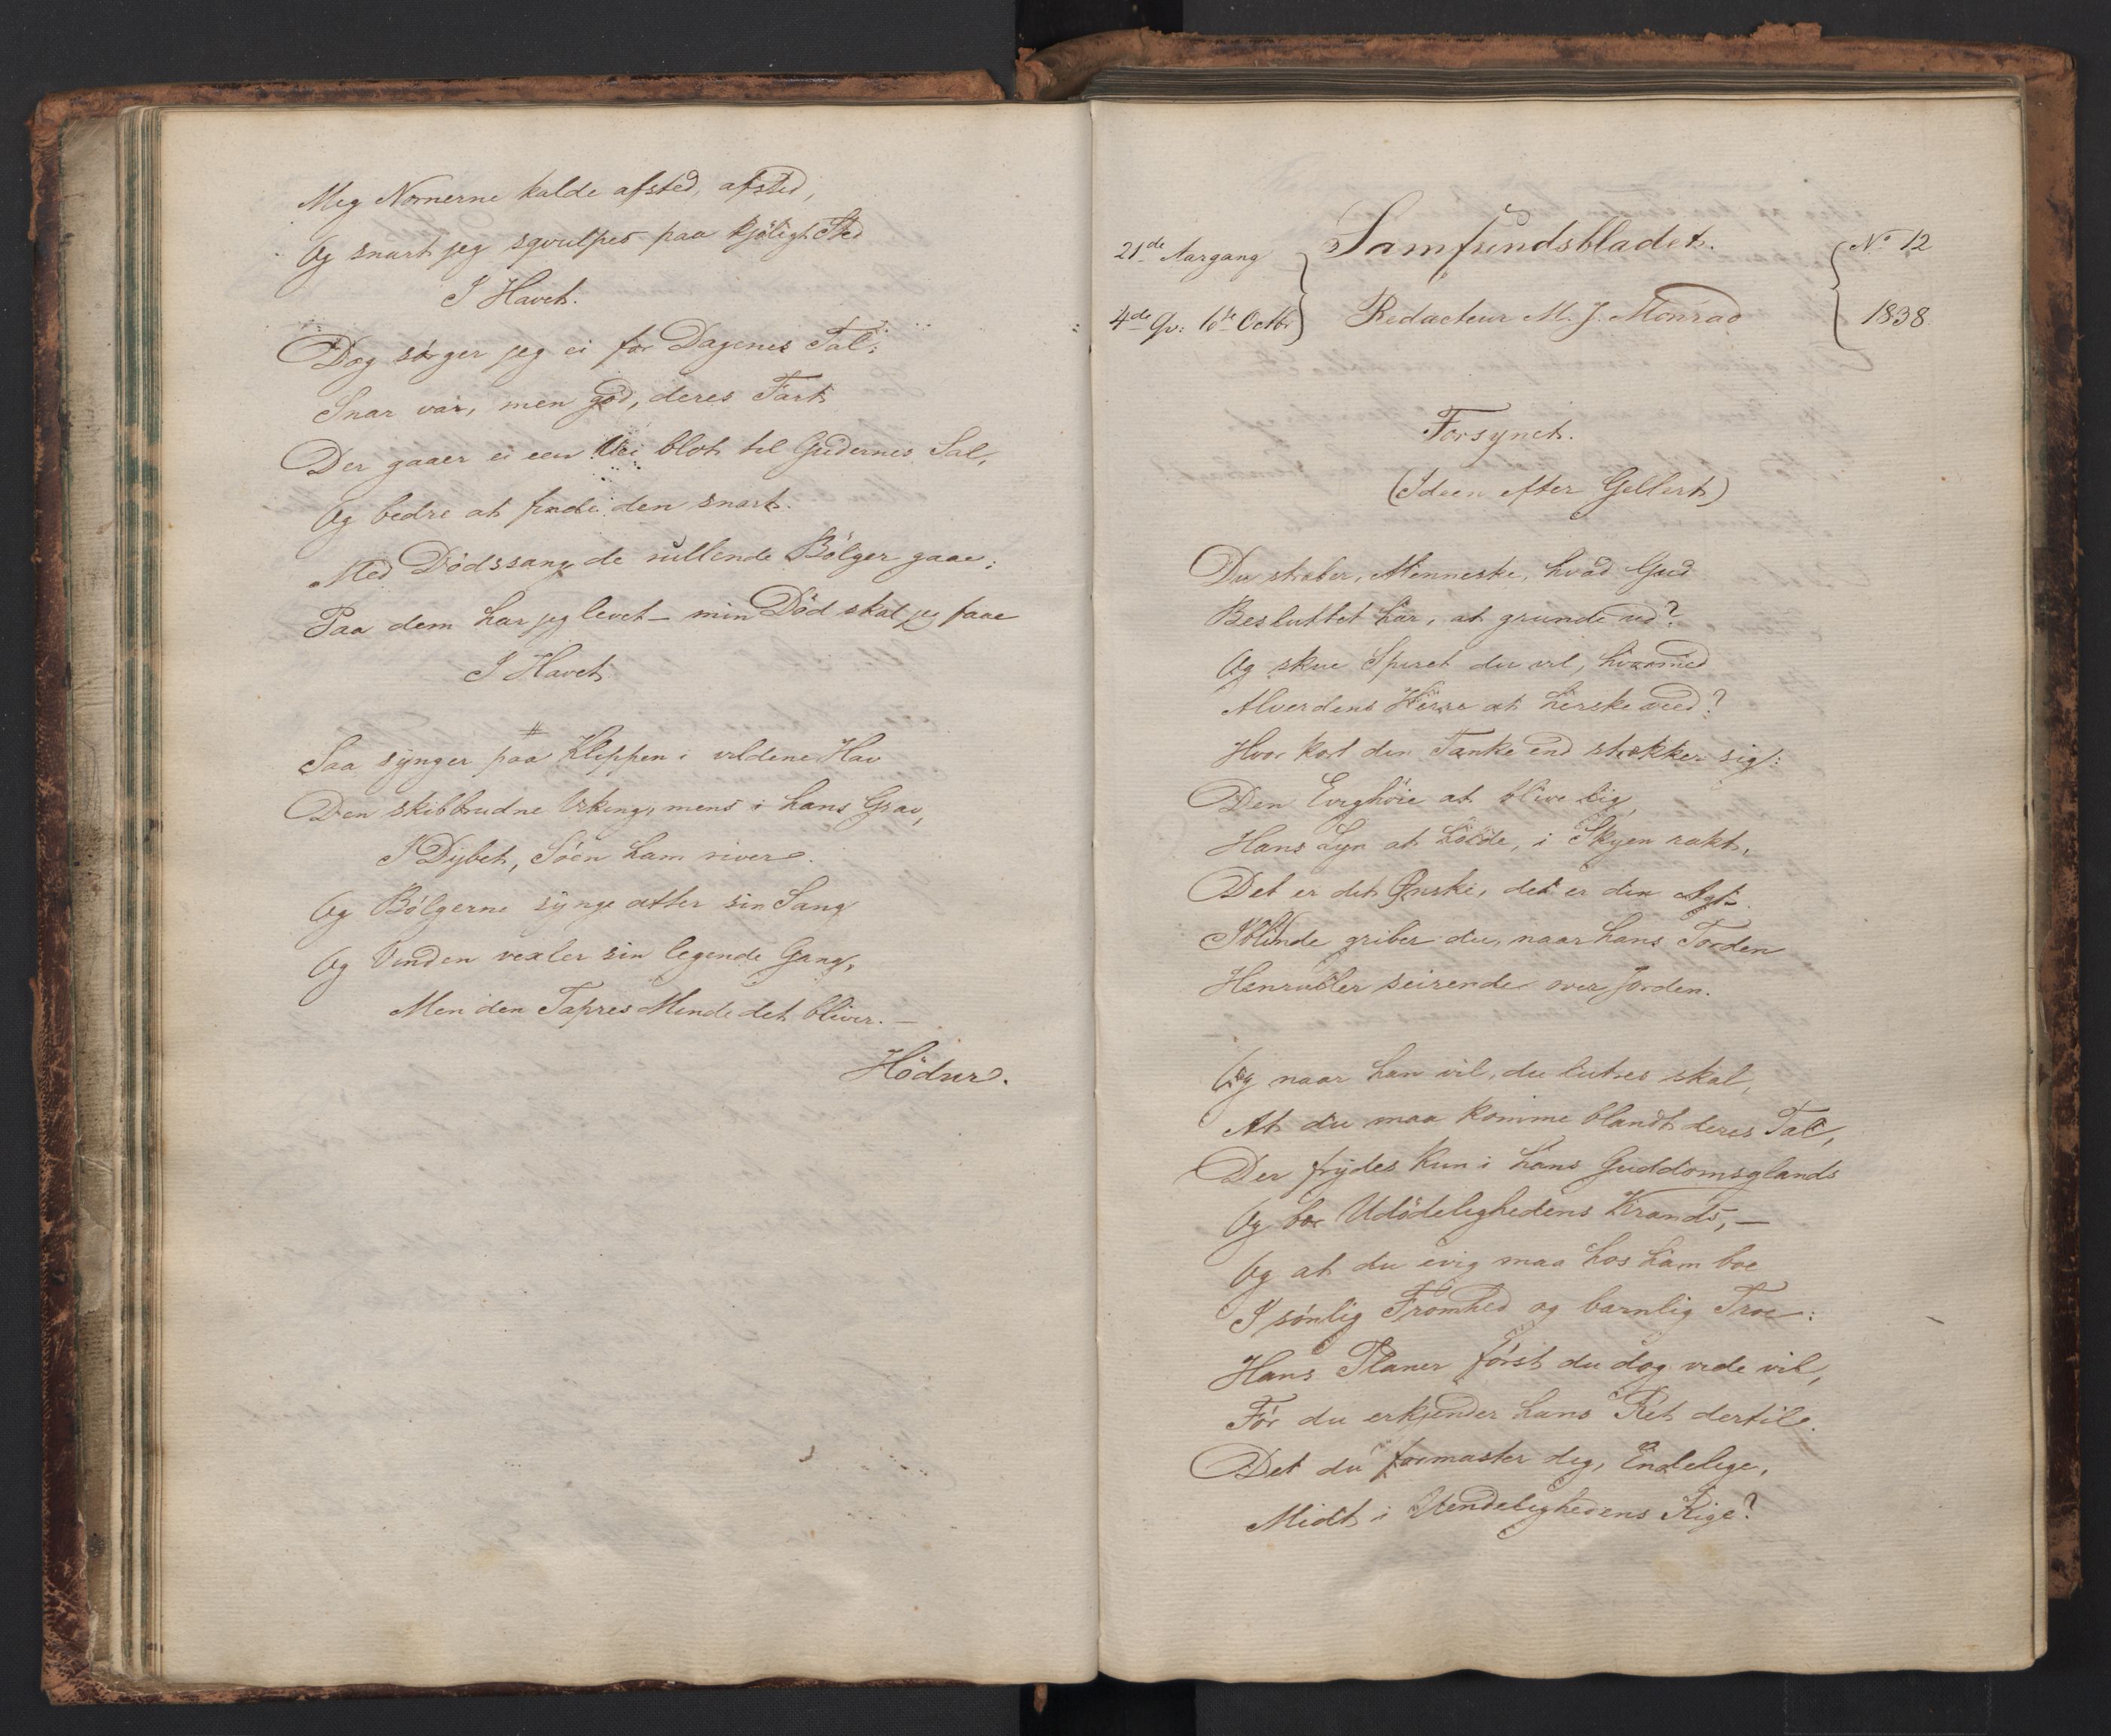 Meg Nornerne kalde afsted, afsted,
Og snart jeg sqvulpes paa kjøligt Sted
I Havet.
Dog sörger jeg ei for Dagenes Tal:
Snar var, men god, deres Fart
Der gaaer ei een Vei blot til Gudernes Sal,
Og bedre at finde den snart.
Med Dödssang de rullende Bölger gaae;
Paa dem har jeg levet – min Död skal jeg faae
I Havet.
Saa synger paa Klippen i vildene Hav
Den skibbrudne Viking, mens i hans Grav,
I Dybet, Söen ham river.
Og Bölgerne synge atter sin Sang
Og Vinden vexler sin legende Gang,
Men den Tapres Minde det bliver. –
Hödur.
21de Aargang
Samfundsbladet.
No 12
4de Qv: 6te Octbr
Redacteur M. J. Monrad
1838.
Forsynet.
(Ideen efter Gellert)
Du stræber, Menneske, hvad Gud
Besluttet har, at grunde ud?
Og skue Spiret du vil, hvormed
Alverdens Herre at herske veed?
Hvor kort din Tanke end strækker sig:
Den Evighöie at blive liig,
Hans Lyn at holde, i Skyen rakt,
Det er dit Ønske, det er din Agt.
Iblinde griber du, naar hans Torden
Henruller seirende over Jorden.
Og naar han vil, du lutres skal,
At du maa komme blandt deres Tal,
Der frydes kun i hans Guddomsglands
Og bær Udödelighedens Krands, –
Og at du evig maa hos ham boe
I sönlig Fromhed og barnlig Troe:
Hans Planer först du dog vide vil,
För du erkjender hans Ret dertil.
Det du formaster dig, Endelige,
Midt i Uendelighedens Rige?